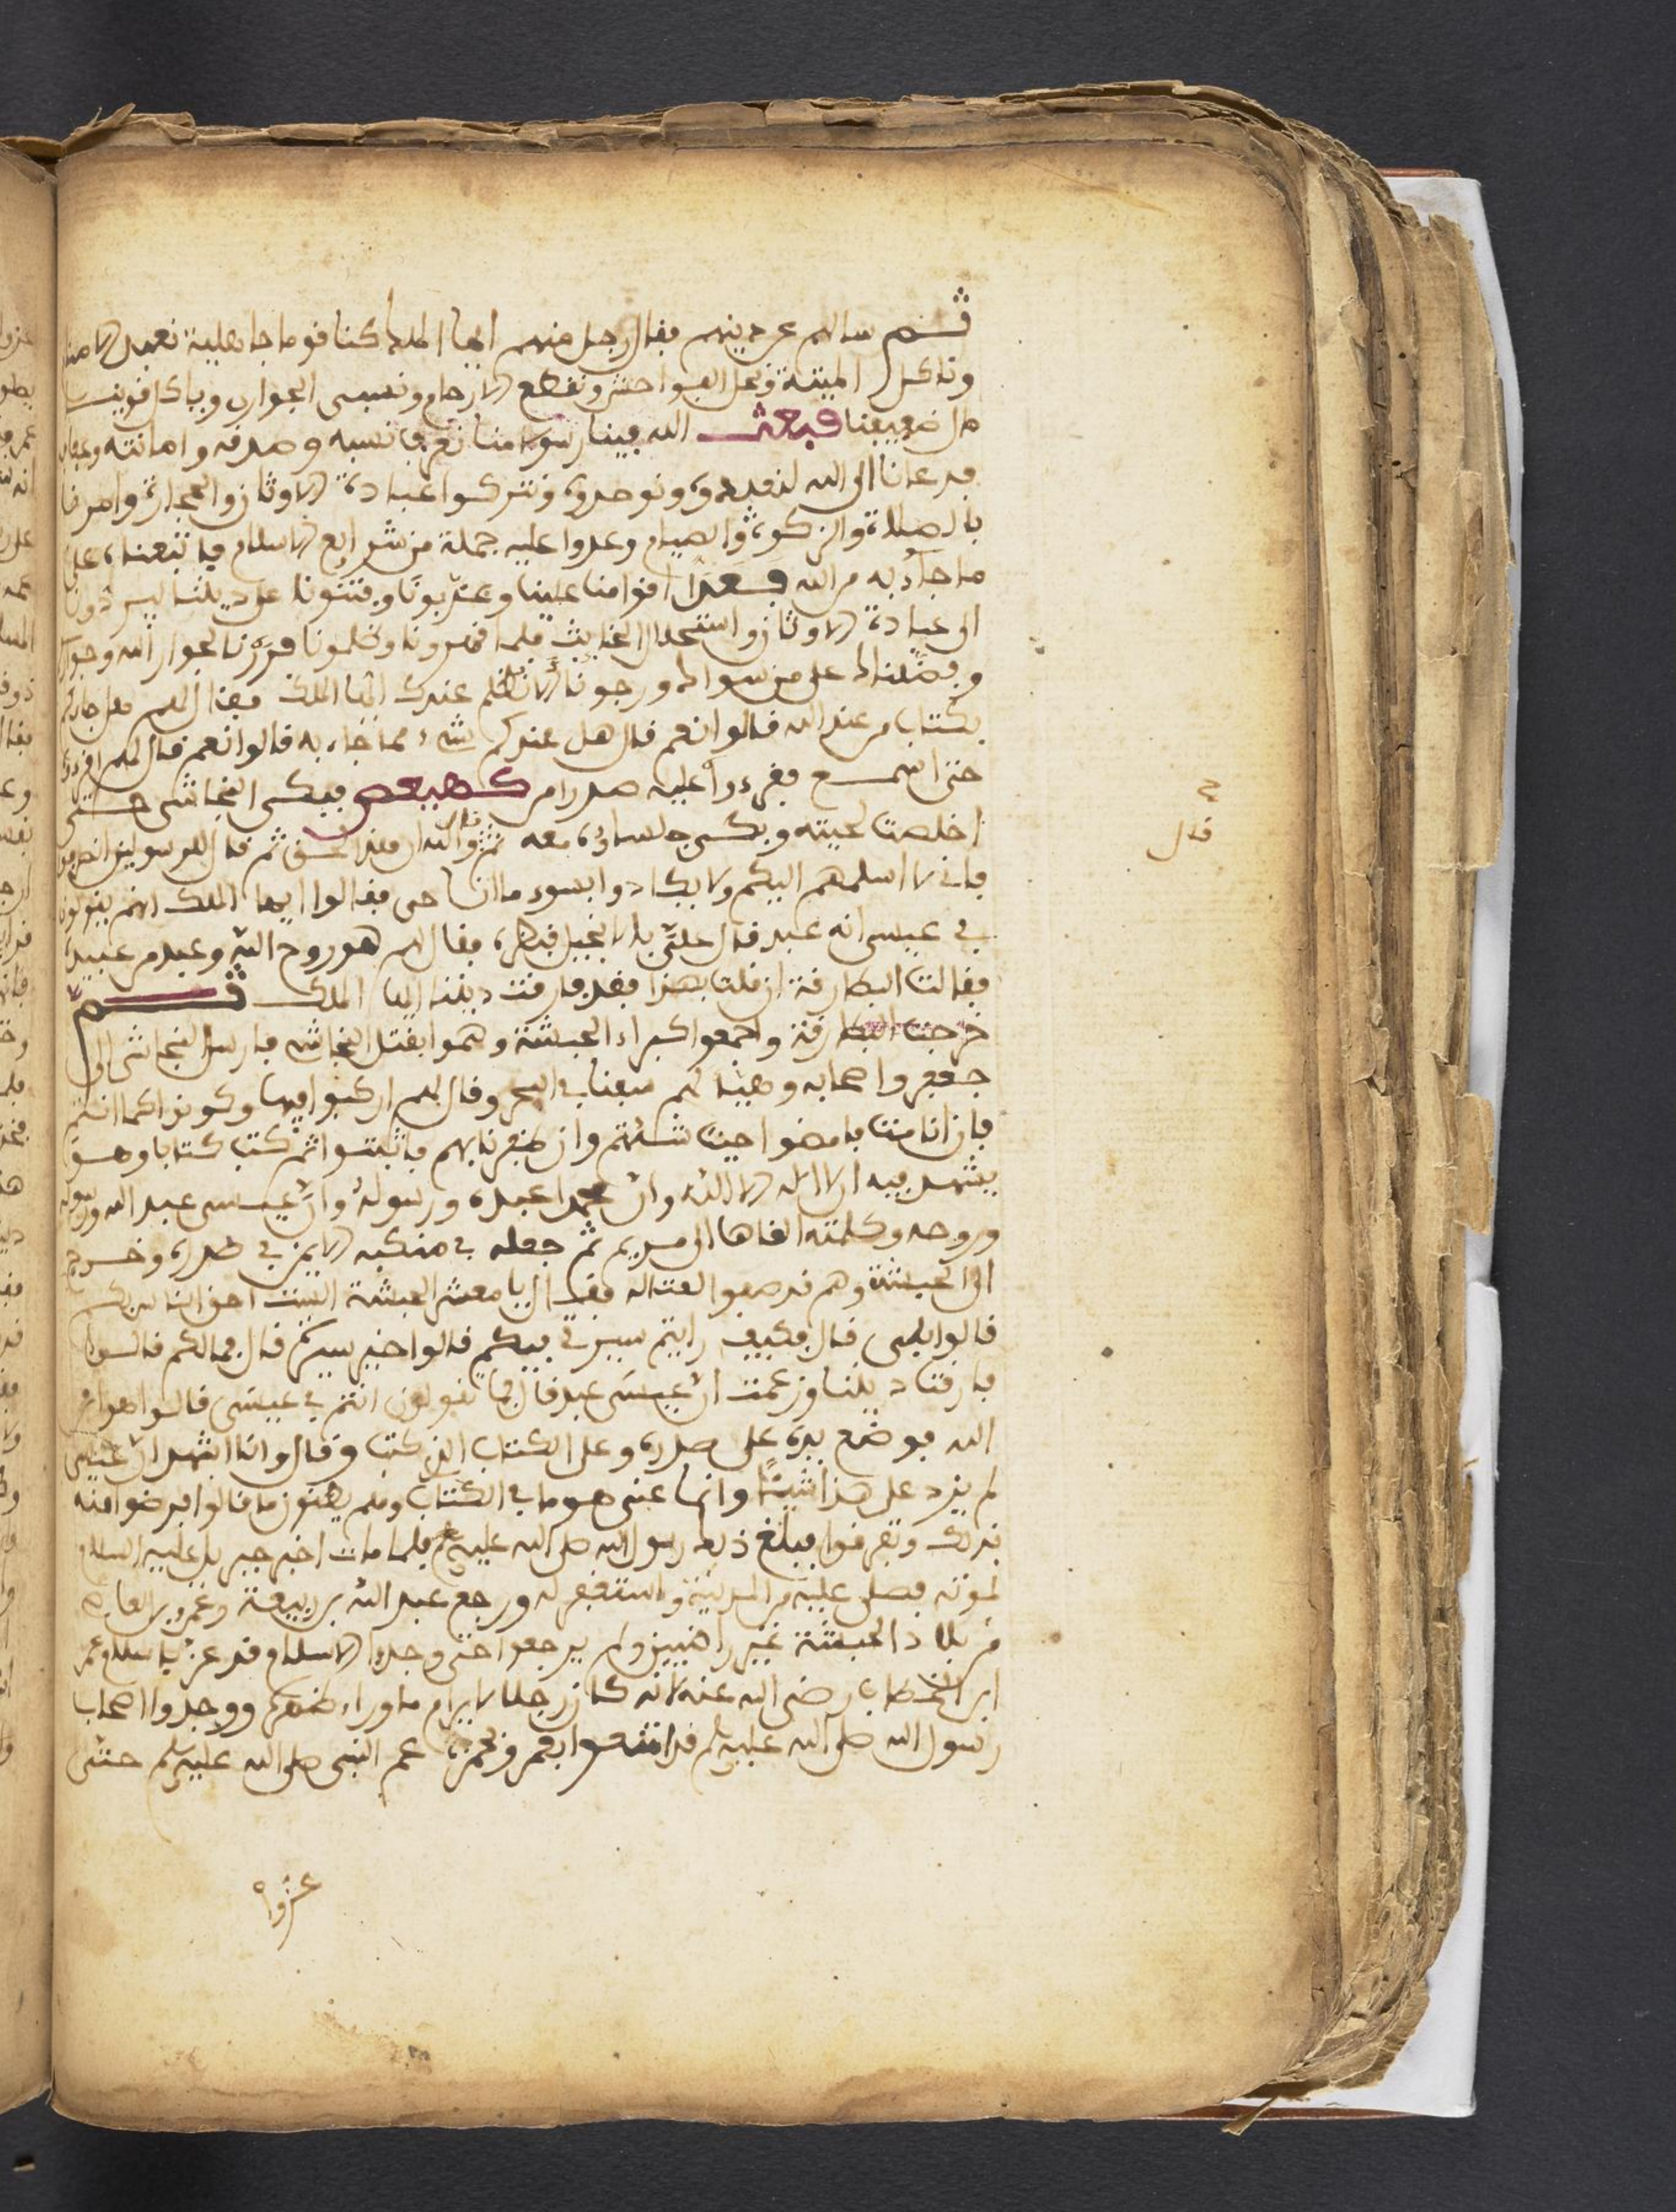 ثم سالهم عن دينهم فقال رجل منهم ايها الملك كنا قوما جاهلية نعبد الاصنام
وناكل الميتة ونعمل الفواحش ونقطع الارحام ونسيىء الجوار وياكل قوينا
ضعيفنا فبعث الله فينا رسولا منا نعرف نسبه وصدقه وامانته وعفافه
فدعانا الى الله لنعبده ونوحده ونتركوا عبادة الاوثان والحجارة وامرنا
بالصلاة والزكوة والصيام وعدوا عليه جملة من شرايع الاسلام فاتبعناه على
ما جاء به من الله فعدا اقوامنا علينا وعذبونا وفتنونا عن ديننا ليردونا
الى عبادة الاوثان واستحلال الخبايث فلما قهرونا وظلمونا فررنا لجوار الله وجوارك
وفضلناك على من سواك ورجونا الا نظلم عندك ايها الملك فقال لهم هل جاءكم
بكتاب من عند الله قالوا نعم قال هل عندكم شيء مما جاء به قالوا نعم قال لهم اقرءوه
حتى اسمع فقرءوا عليه صدرا من كهيعص فبكى النجاشى حتى
اخضلت لحيته وبكى جلساؤه معه ثم قال والله ان هذا لحق ثم قال للرسولين انصرفا
فاني لا اسلمهم اليكم ولا يكادوا بسوء ما انا حى فقالوا ايها الملك انهم يقولون
في عيسى انه عبد قال علي بالانجيل فنظره فقال لهم هو روح الله وعبد من عبيده
فقالت البطارقة ان قلت بهذا فقد فارقت ديننا ايها الملك ثم
خرجت البطارقة واجمعوا كبراء الحبشة وهموا بقتل النجاشي فارسل النجاشى الى
جعفر واصحابه وهيئا لهم سفنا في البحر وقال لهم اركبوا فيها وكونوا كما انتم
فان انا مت فامضوا حيث شئتم وان ظفرنا بهم فاثبتوا ثم كتب كتابا وهو
يشهد فيه ان لا اله الا الله وان محمدا عبده ورسوله وان عيسى عبد الله ورسوله
وروحه وكلمته القاها الى مريم ثم جعله في منكبه الايمن في صدره وخرج
الى الحبشة وهم قد صفوا لقتاله فقال يا معشر الحبشة الست احق الناس بكم
قالوا بلى قال فكيف رايتم سيرتي فيكم قالوا خير سيرة قال فما لكم قالوا
فارقت ديننا وزعمت ان عيسى عبد قال فما تقولون انتم في عيسى قالوا هو ابن
الله فوضع يده على صدره وعلى الكتاب الذي كتب وقال وانا اشهد ان عيسى
لم يزد على هذا شيئا وانما عنى هو ما في الكتاب وهم يظنون ما قالوا فرضوا منه
بذلك وتفرقوا فبلغ ذلك رسول الله صلى الله عليه وسلم فلما مات اخبر جبريل عليه السلام
لموته فصلى عليه من المدينة واستغفر له ورجع عبد الله بن ربيعة وعمرو بن العاص
من بلاد الحبشة غير راضيين ولم يرجعوا حتى وجدوا الاسلام قد عز باسلام عمر
ابن الخطاب رضى الله عنه لانه كان رجلا لا يرام ما وراء ظهره ووجدوا اصحاب
رسول الله صلى الله عليه وسلم قد امتنعوا بعمر وحمزة عم النبى صلى الله عليه وسلم حتى
قال
عزوا